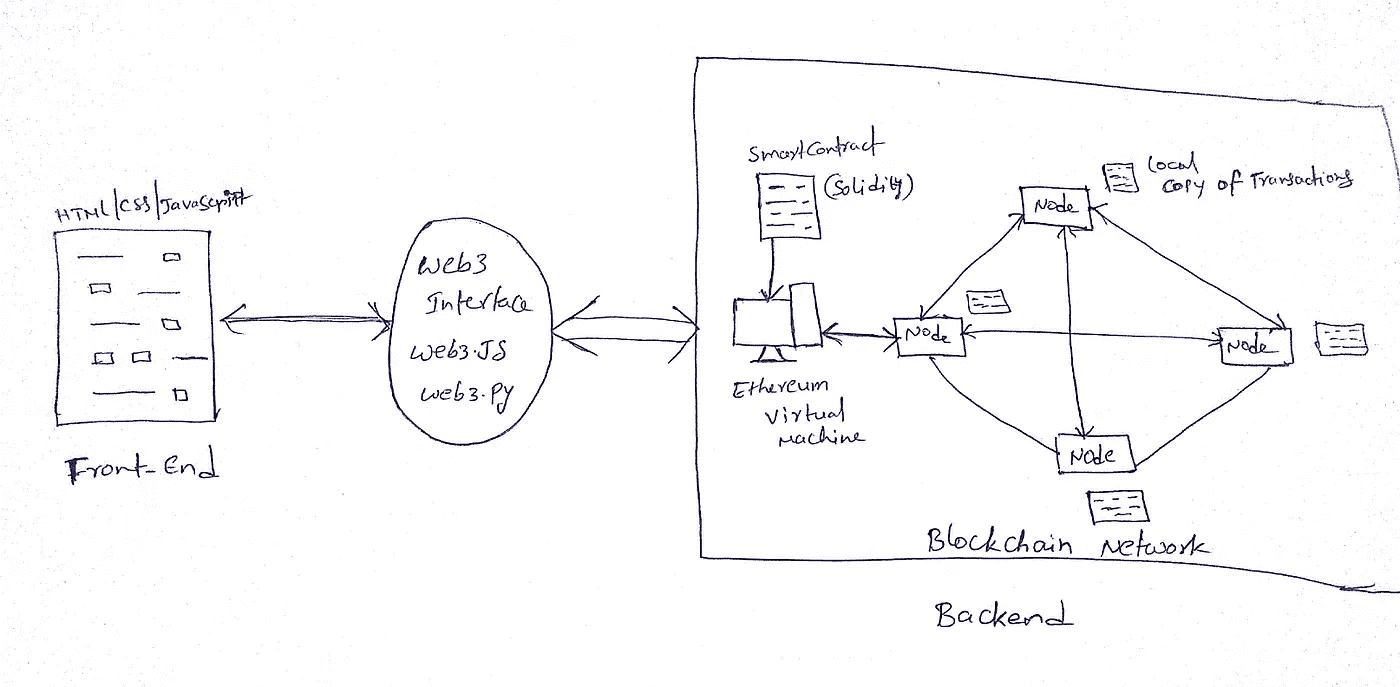 HTML/CSS/JavaScript
Front-End
Web3
Interface
Web3.JS
Web3.Py
SmartContract
(Solidity)
Ethereum
Virtual
Machine
Node
Local
Copy of Transactions
Node
Node
Node
Blockchain Network
Backend